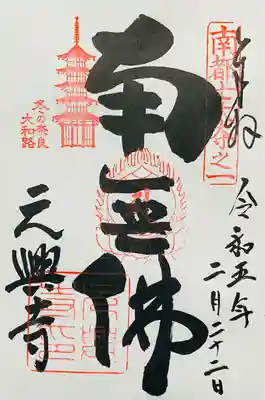 奉拝
令和五年
二月二十二日
南都十五大寺之一
南無佛
冬の奈良
大和路
元興寺